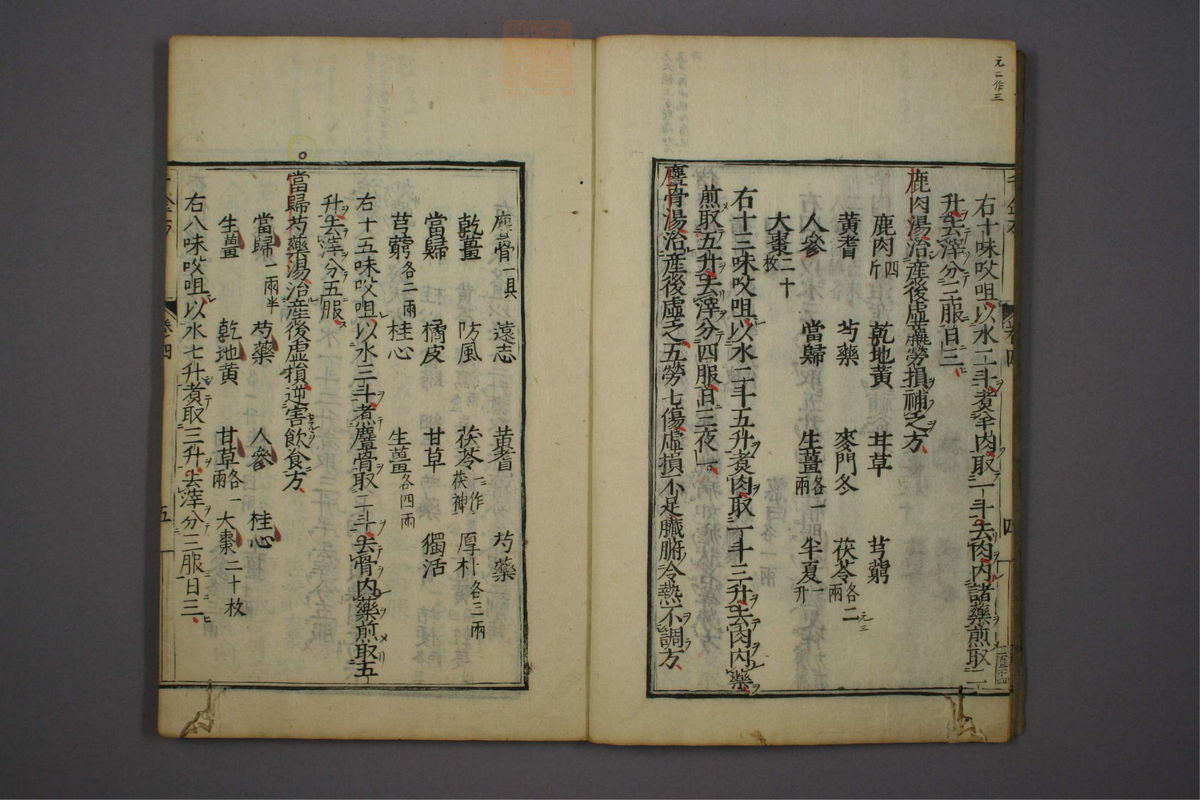 元二作三
右十味㕮咀以水二斗煑羊肉取一斗去肉内諸藥煎取二
升去滓分三服日三
鹿肉湯治産後虛羸勞損補乏方
鹿肉四斤 乾地黄 甘草 芎藭
黄耆 芍藥 麥門冬 茯苓各二兩
元三
人參 當歸 生薑各一兩 半夏一升
大棗二十枚
右十三味㕮咀以水二斗五升煑肉取一斗三升去肉内藥
煎取五升去滓分四服日三夜一
麞骨湯治産後虛乏五勞七傷虛損不足臟腑冷熱不調方
卷四
四
麞骨一具 遠志 黄耆 芍藥
乾薑 防風 茯苓一作茯神 厚朴各三兩
當歸 橘皮 甘草 獨活
芎藭各二兩 桂心 生薑各四兩
右十五味㕮咀以水三斗煮麞骨取二斗去骨内藥煎取五
升去滓分五服
當歸芍藥湯治産後虛損逆害飲食方
當歸一兩半 芍藥 人參 桂心
生薑 乾地黄 甘草各一兩 大棗二十枚
右八味㕮咀以水七升煑取三升去滓分三服日三
卷四
五